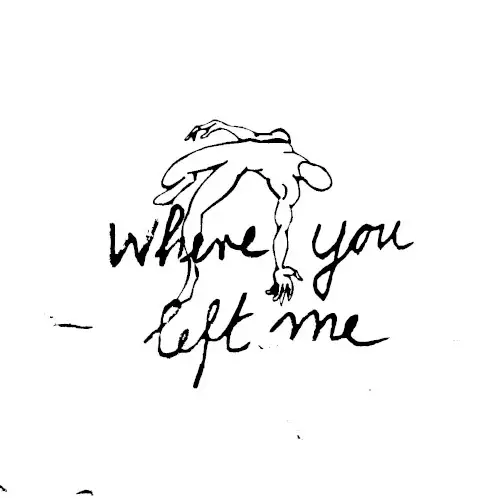 Where you
left me